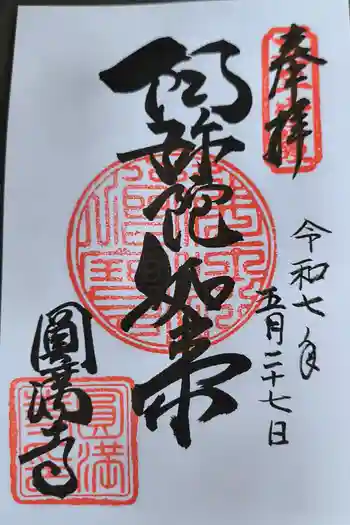 奉拝
令和七年
五月二十七日
阿弥陀如来
圓満寺
圓満